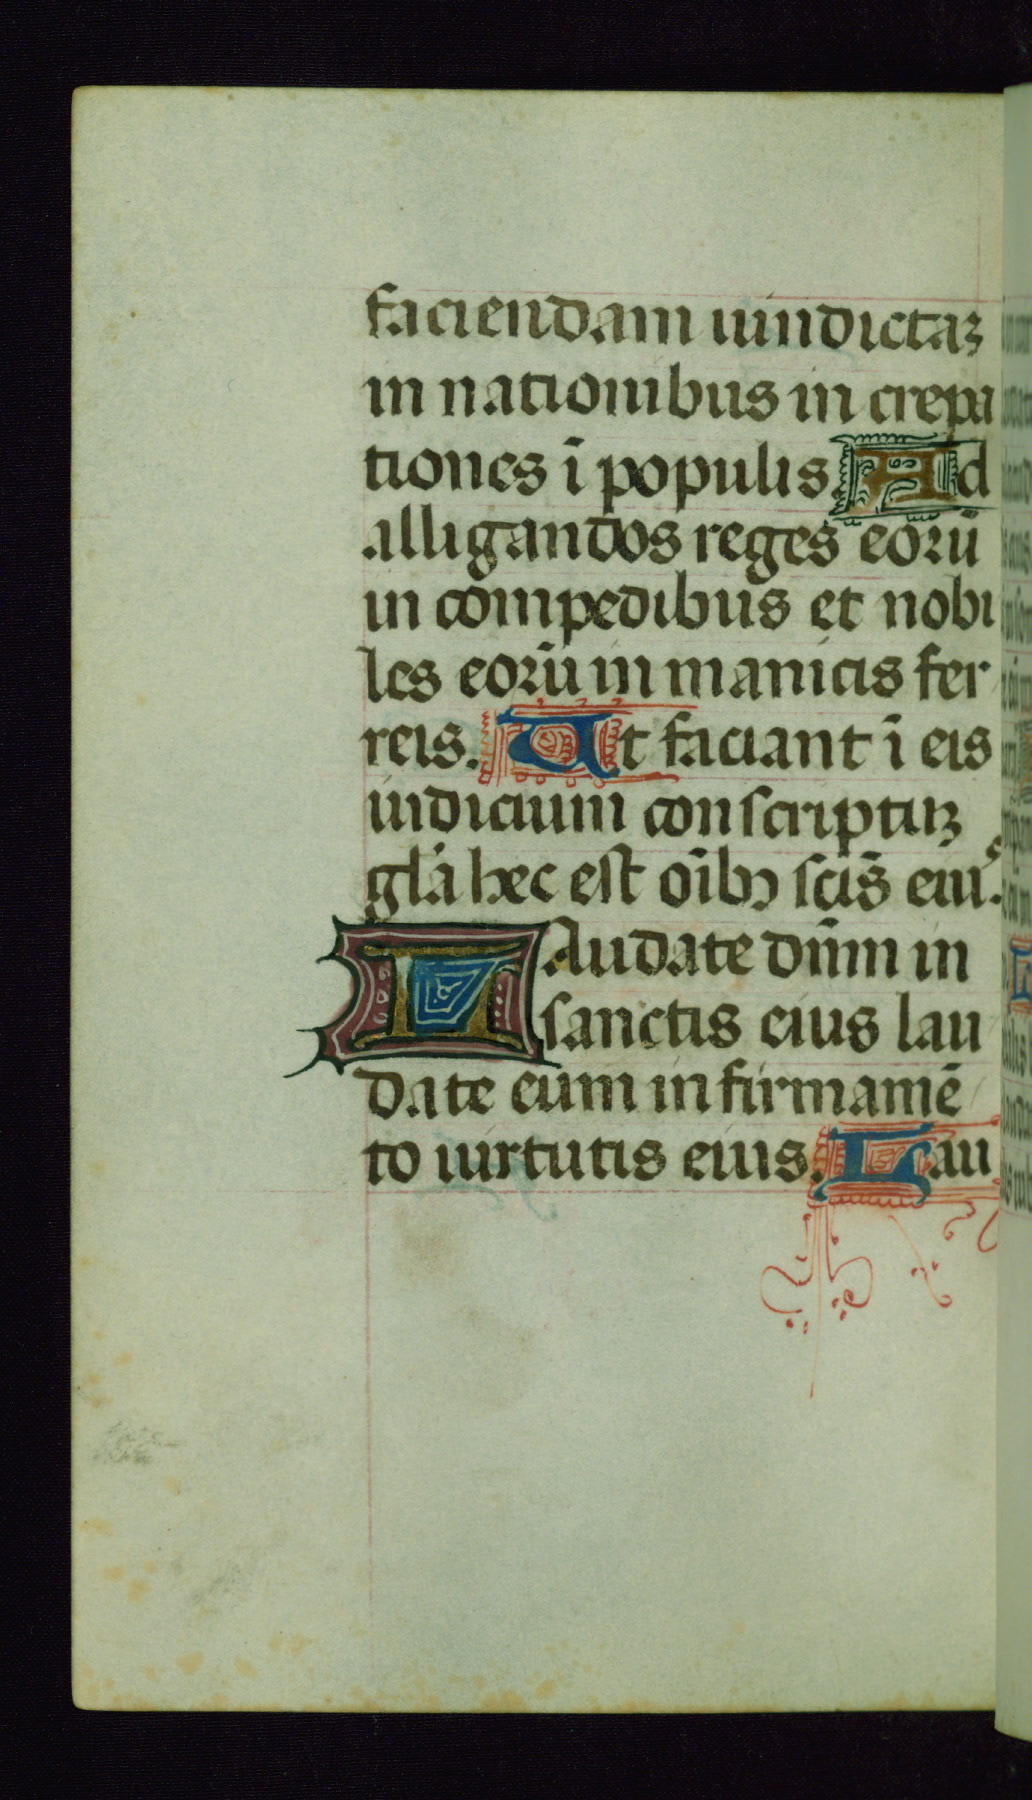 faciendam uindictaꝫ
in nationibus in crepa
tiones ī populis. Ad
alligandos reges eorū
in compedibus et nobi
les eorū in manicis fer
reis. Ut faciant ī eis
iudicium conscriptuꝫ
gl̄a hec est oı̄bꝫ sc̄is eiuˢ.
LAudate dn̄m in
sanctis eius lau
date eum in firmamē
to uirtutis eius. Lau